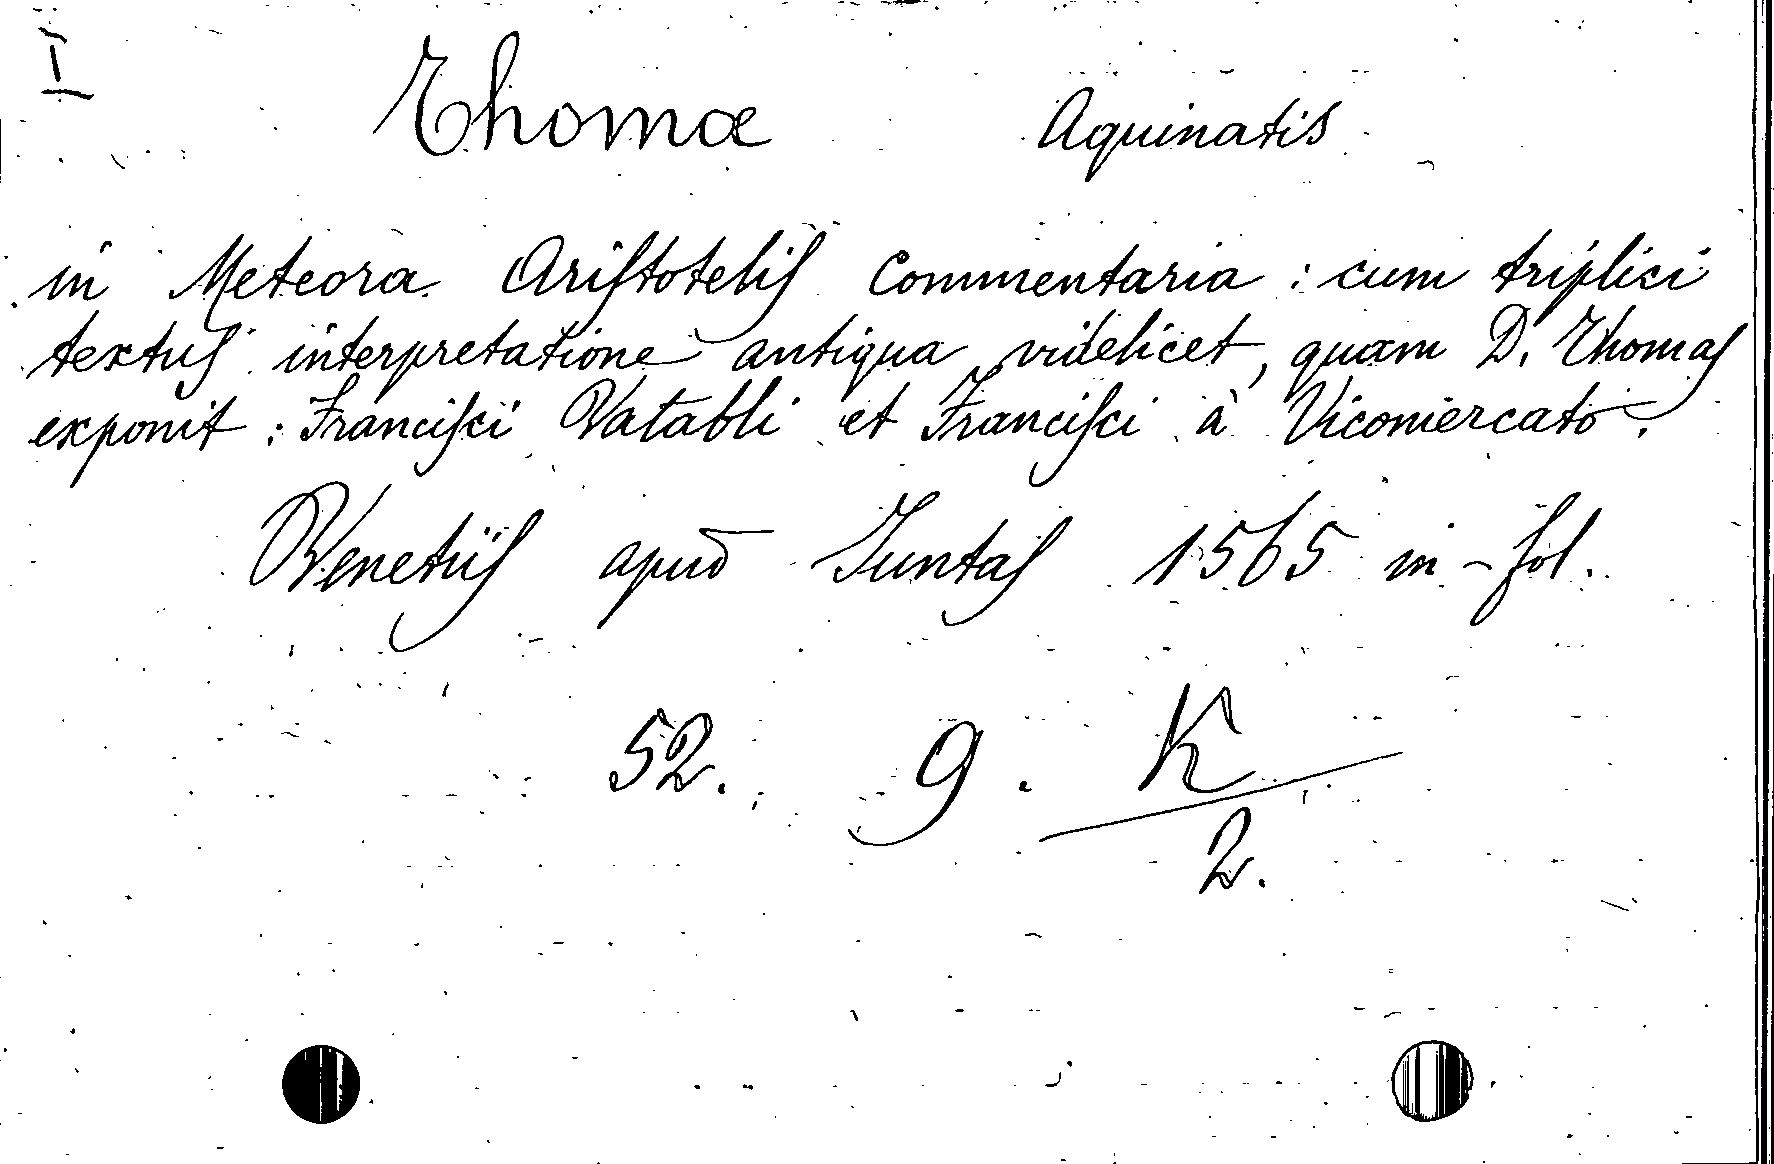 I
Thomæ Aquinatis
in Meteora Ariſtoteliſ Commentaria : cum triplici
textuſ interpretatione antiqua videlicet, quam D. Thomaſ
exponit : Franciſci Vatabli et Franciſci à Vicomercato.
Venetiiſ apud Juntaſ 1565 in-fol.
52. 9. K
2.